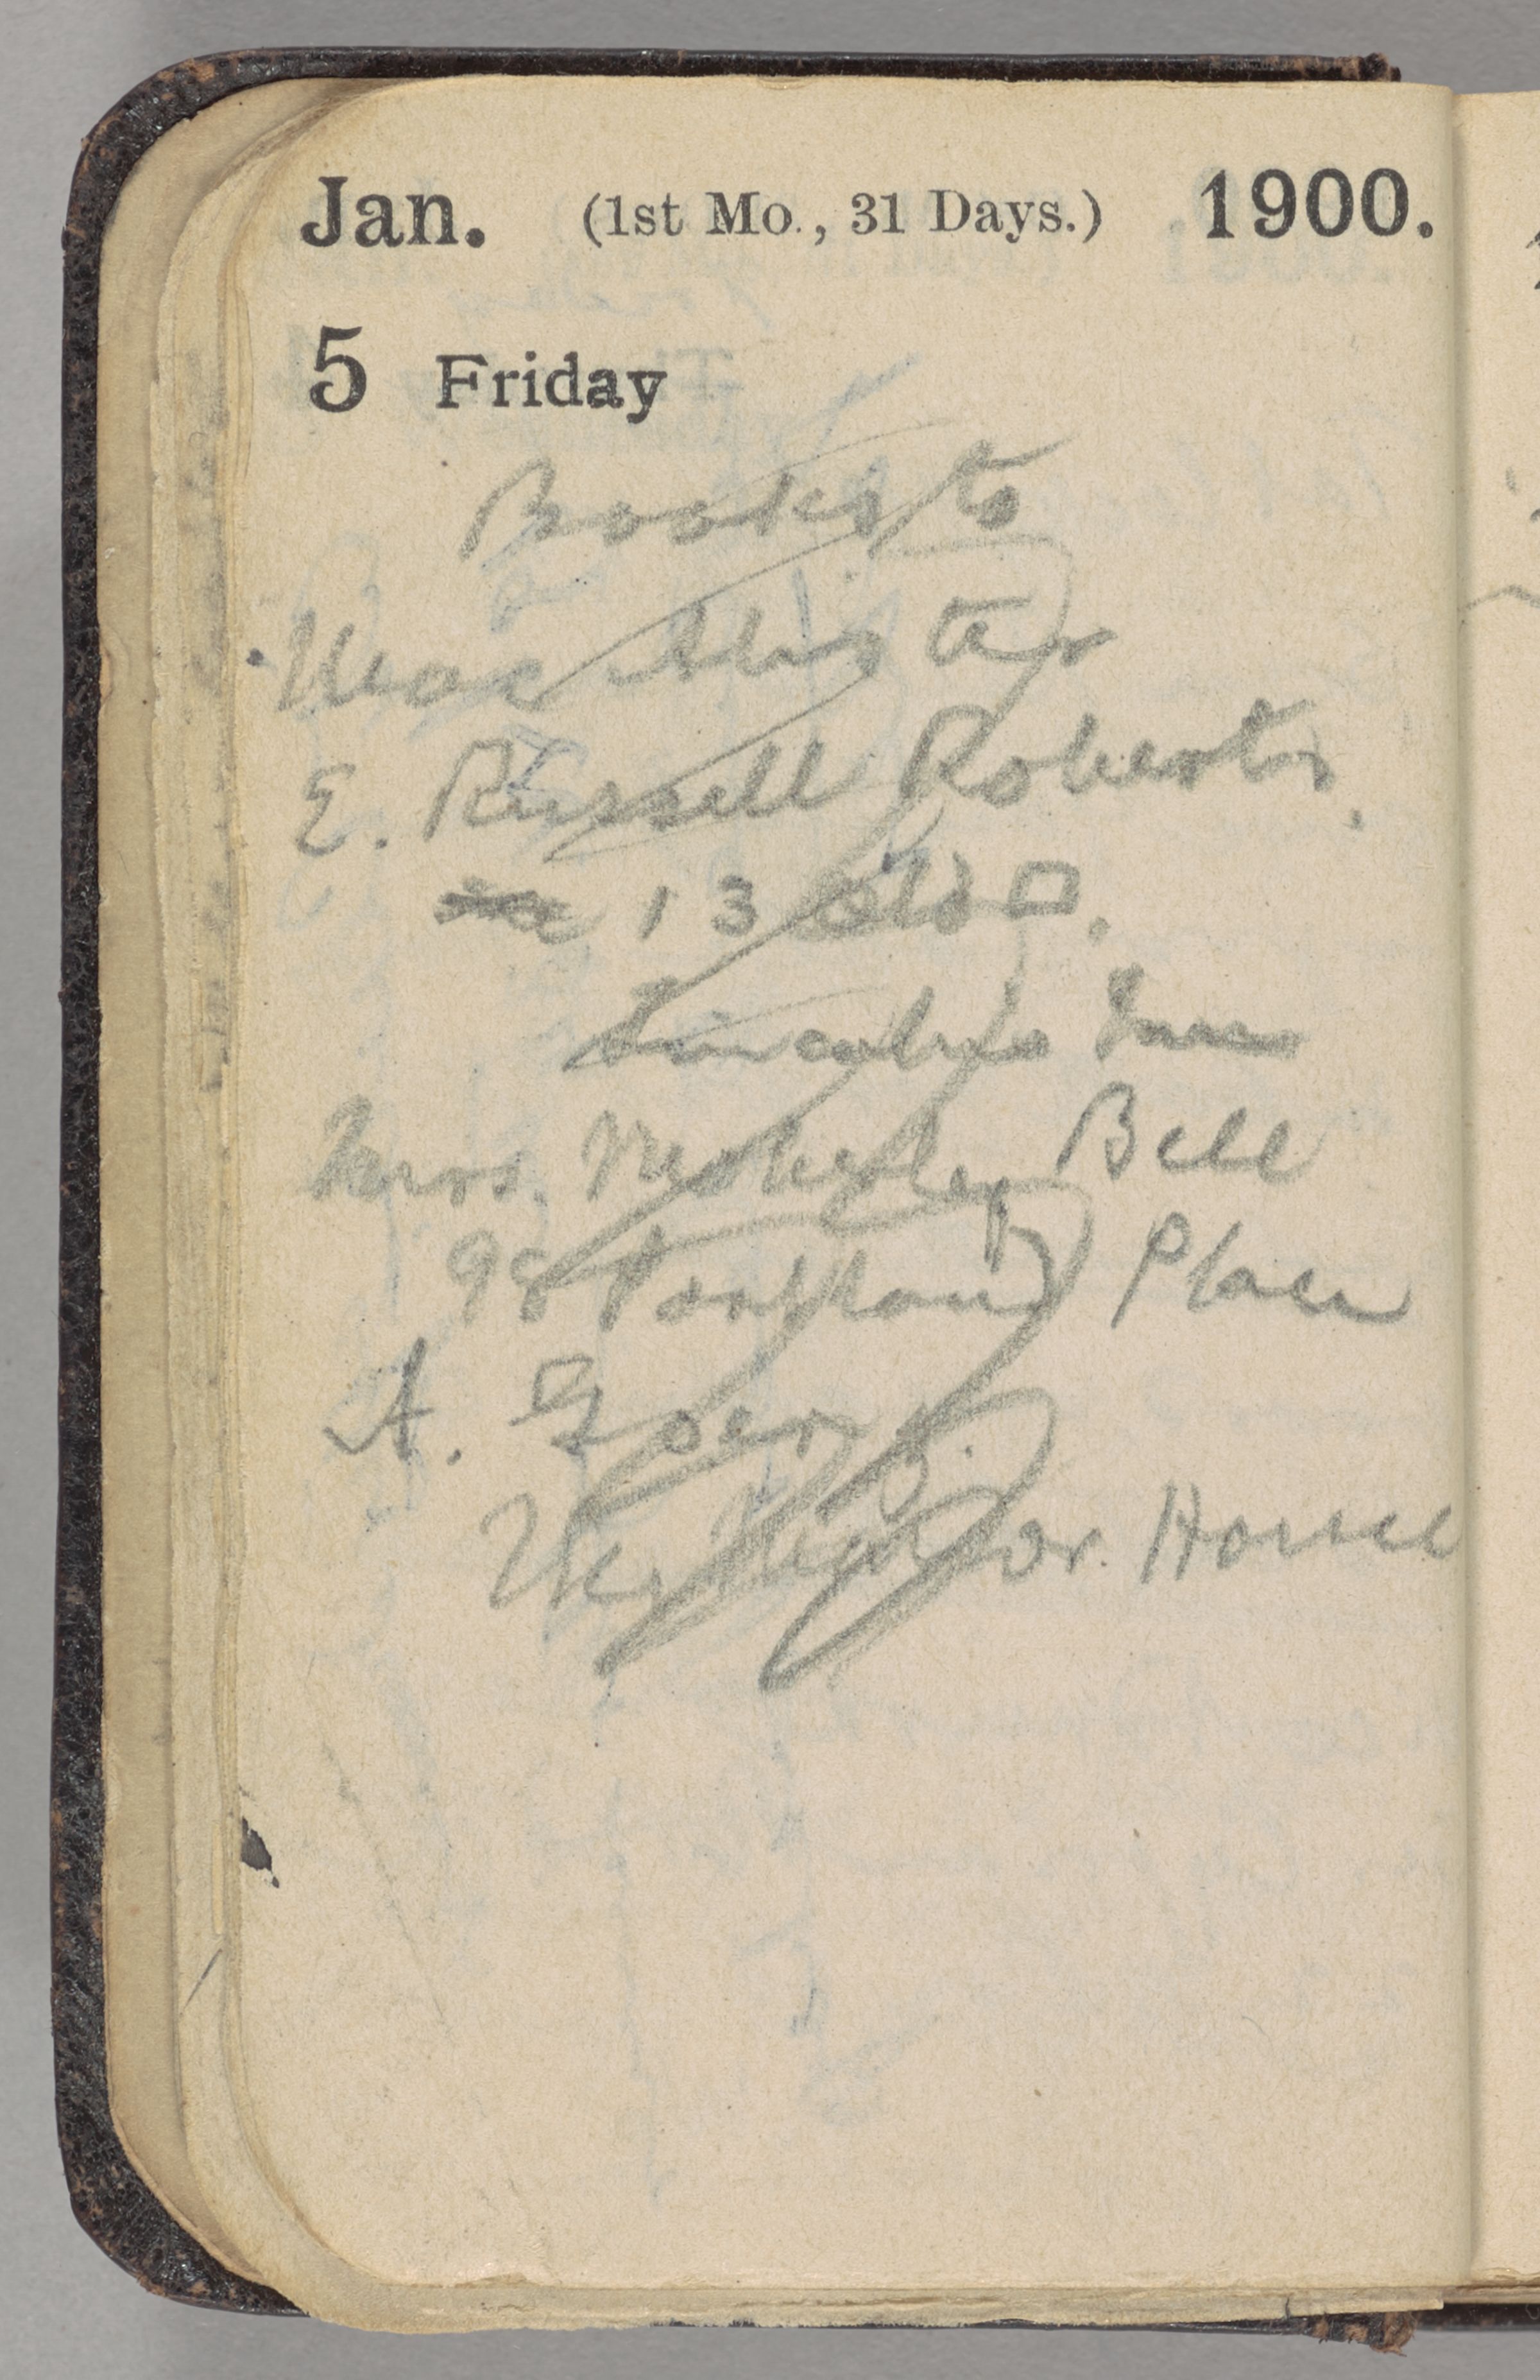 Jan. (1st Mo., 31 Days.) 1900.
5 Friday
Books to
MacAlister
E. Russell Roberts.
13 Old □.
Lincoln's Inn
Mrs. Moberley Bell
98 Portland Place
A. Goerz.
Wynnstay House